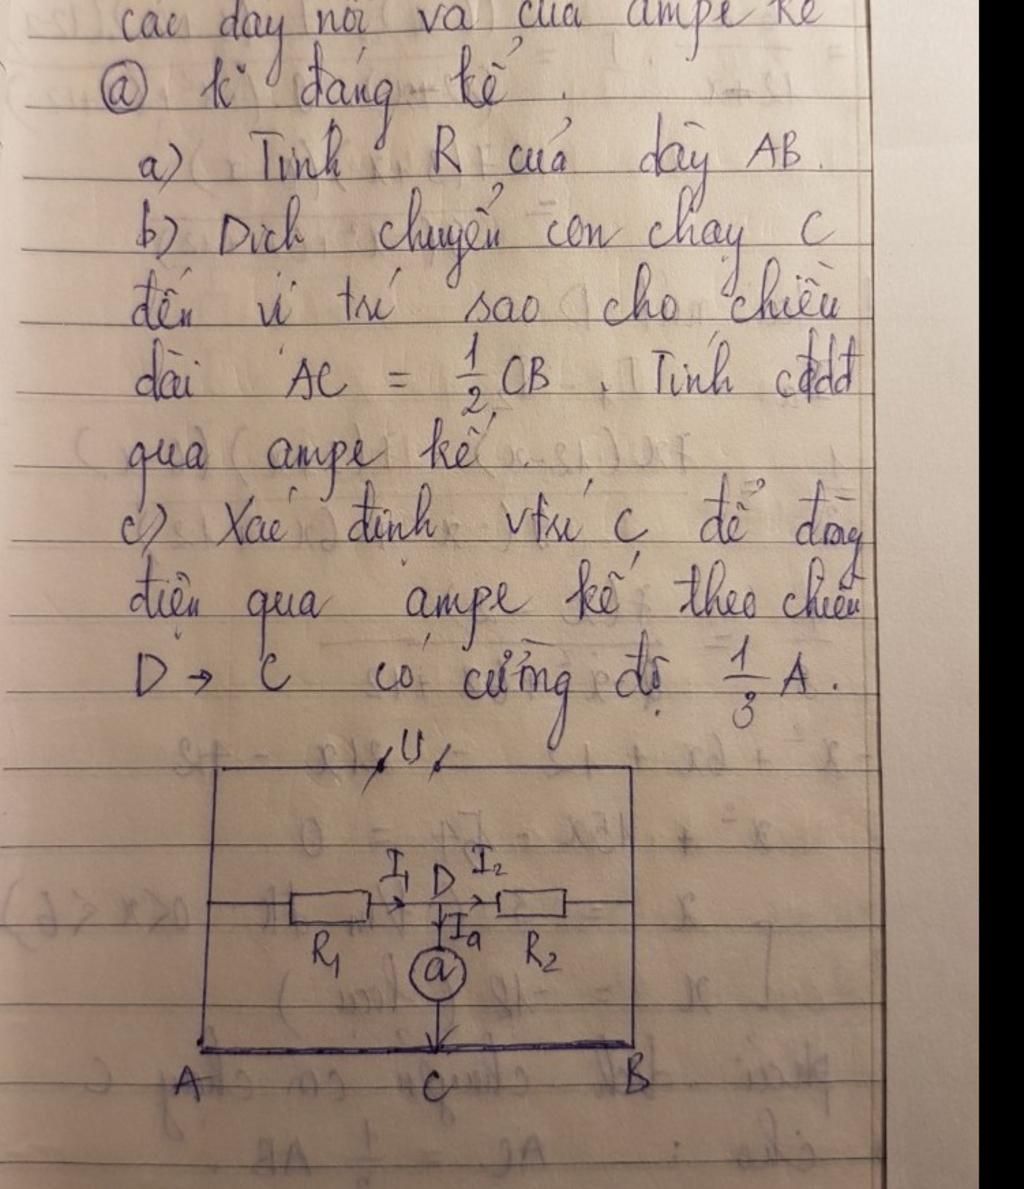 các dây nối và của ampe kế
ⓐ k° đáng kể.
a) Tính R của dây AB.
b) Dịch chuyển con chạy C
đến vị trí sao cho chiều
dài AC = 1/2 CB. Tính cđdđ
qua ampe kế.
c) Xác định vtrí C để dòng
điện qua ampe kế theo chiều
D → C có cường độ 1/3 A.
U
I₁ D I₂
Iₐ
R₁ ⓐ R₂
A C B